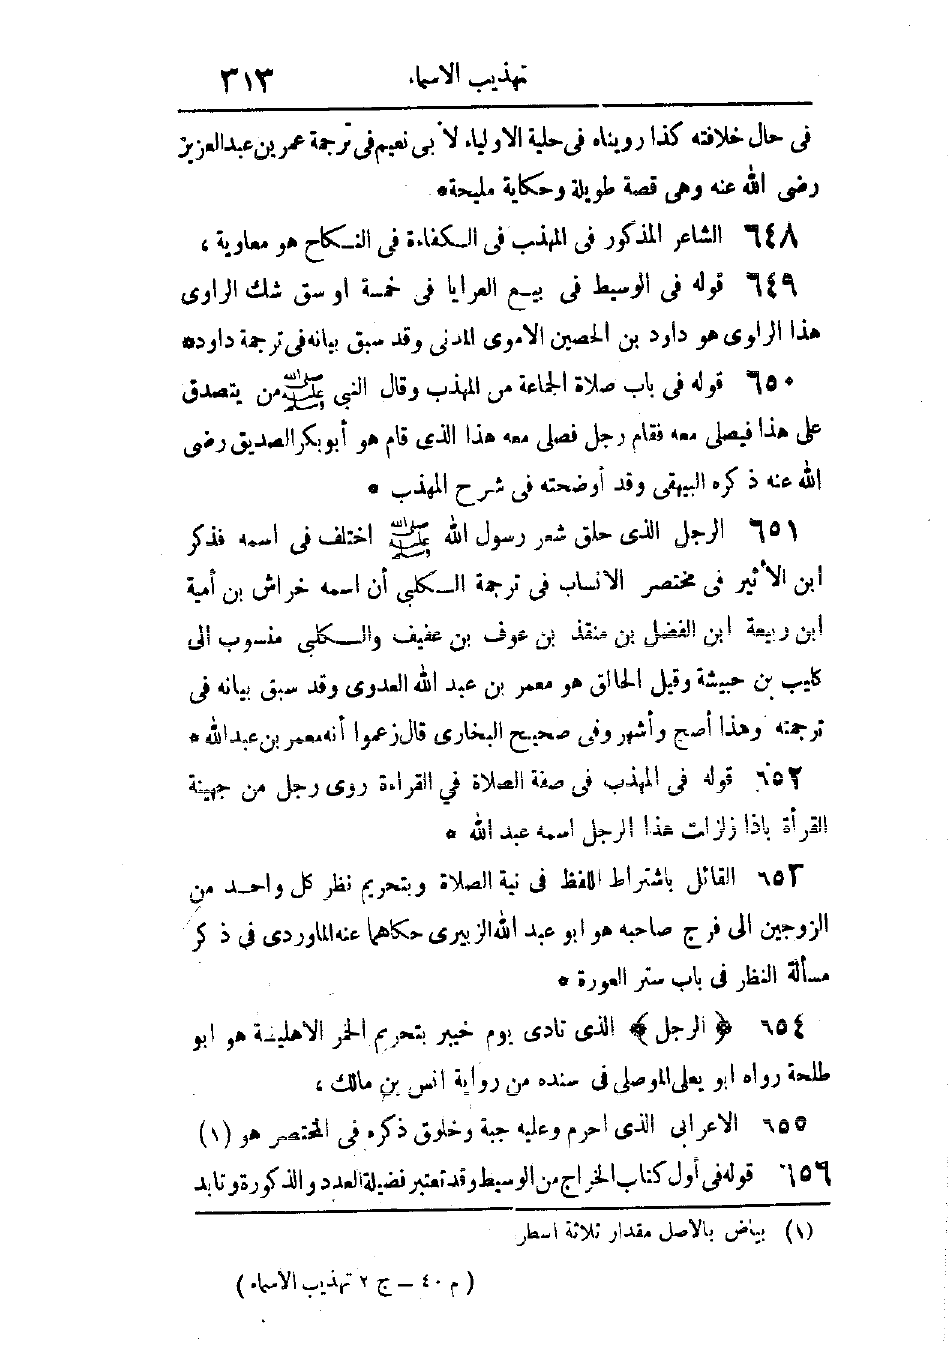 تهذيب الاسماء ٣١٣
فى حال خلافته كذا رويناه فى حلية الاولياء لأبى نعيم فى ترجمة عمر بن عبد العزيز
رضى الله عنه وهى قصة طويلة وحكاية مليحة*
٦٤٨ الشاعر المذكور فى المهذب فى الكفاءة فى النكاح هو معاوية ،
٦٤٩ قوله فى الوسيط فى بيع العرايا فى خمسة او سق شك الراوى
هذا الراوى هو داود بن الحصين الاموى المدنى وقد سبق بيانه فى ترجمة داود*
٦٥٠ قوله فى باب صلاة الجماعة من المهذب وقال النبى ﷺ من يتصدق
على هذا فيصلى معه فقام رجل فصلى معه هذا الذى قام هو أبو بكر الصديق رضى
الله عنه ذكره البيهقى وقد أوضحته فى شرح المهذب *
٦٥١ الرجل الذى حلق شعر رسول الله ﷺ اختلف فى اسمه فذكر
ابن الأثير فى مختصر الانساب فى ترجمة الكلبى أن اسمه خراش بن أمية
ابن ربيعة ابن الفضل بن منقذ بن عوف بن عفيف والكلبى منسوب الى
كليب بن حبيشة وقيل الحالق هو معمر بن عبد الله العدوى وقد سبق بيانه فى
ترجمته وهذا أصح وأشهر وفى صحيح البخارى قال زعموا أنه معمر بن عبد الله *
٦٥٢ قوله فى المهذب فى صفة الصلاة في القراءة روى رجل من جهينة
القرأة باذا زلزلت هذا الرجل اسمه عبد الله *
٦٥٣ القائل باشتراط اللفظ فى نية الصلاة وبتحريم نظر كل واحد من
الزوجين الى فرج صاحبه هو ابو عبد الله الزبيرى حكاهما عنه الماوردى فى ذكر
مسألة النظر فى باب ستر العورة *
٦٥٤ ﴿ الرجل ﴾ الذى نادى يوم خيبر بتحريم الحمر الاهلية هو ابو
طلحة رواه ابو يعلى الموصلى فى سنده من رواية انس بن مالك ،
٦٥٥ الاعرابى الذى احرم وعليه جبة وخلوق ذكره فى المختصر هو (١)
٦٥٦ قوله فى أول كتاب الخراج من الوسيط وقد تعتبر فضيلة العدد والذكورة وتابد
(١) بياض بالاصل مقدار ثلاثة اسطر
( م ٤٠ – ج ٢ تهذيب الاسماء )